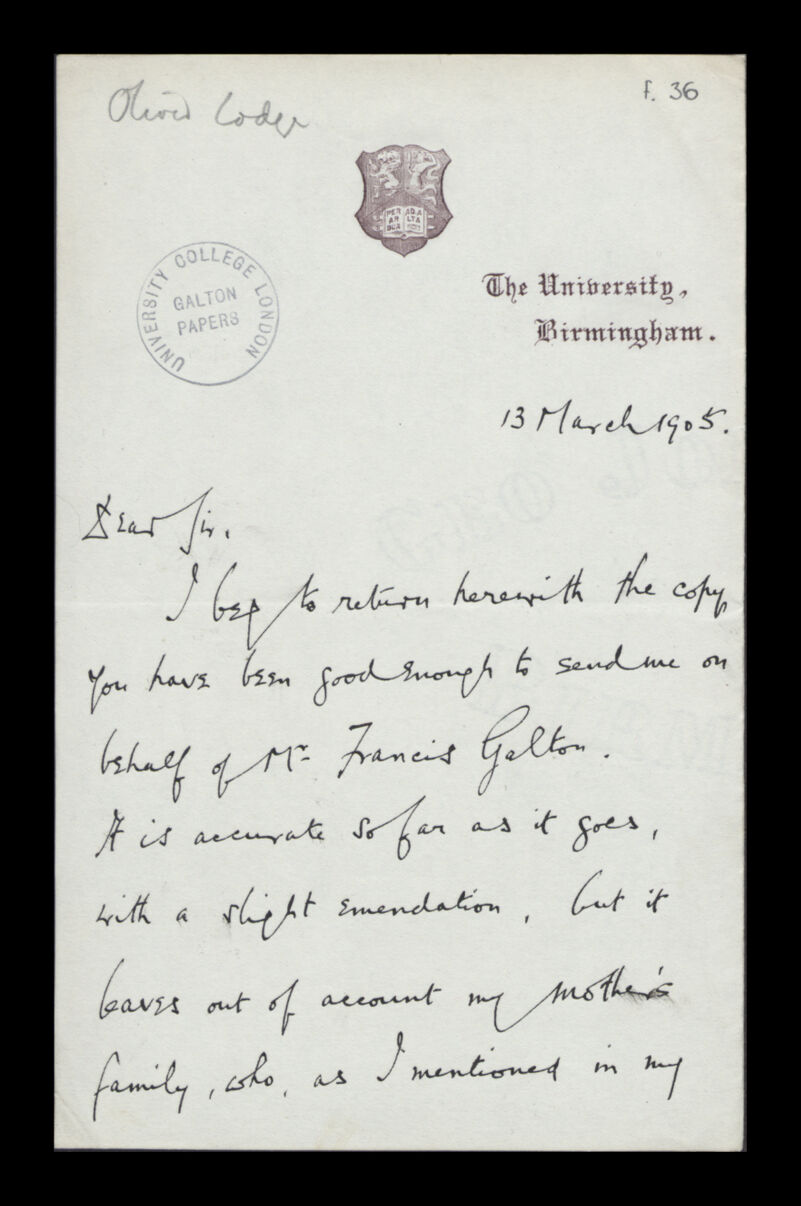 Oliver Lodge
f. 36
PER AR DUA AD A LTA
UNIVERSITY COLLEGE LONDON
GALTON
PAPERS
The University,
Birmingham.
13 March 1905.
Dear Sir.
I beg to return herewith the copy
you have been good enough to send me on
behalf of Mr. Francis Galton.
It is accurate so far as it goes,
with a slight emendation, but it
leaves out of account my mother's
family, who, as I mentioned in my